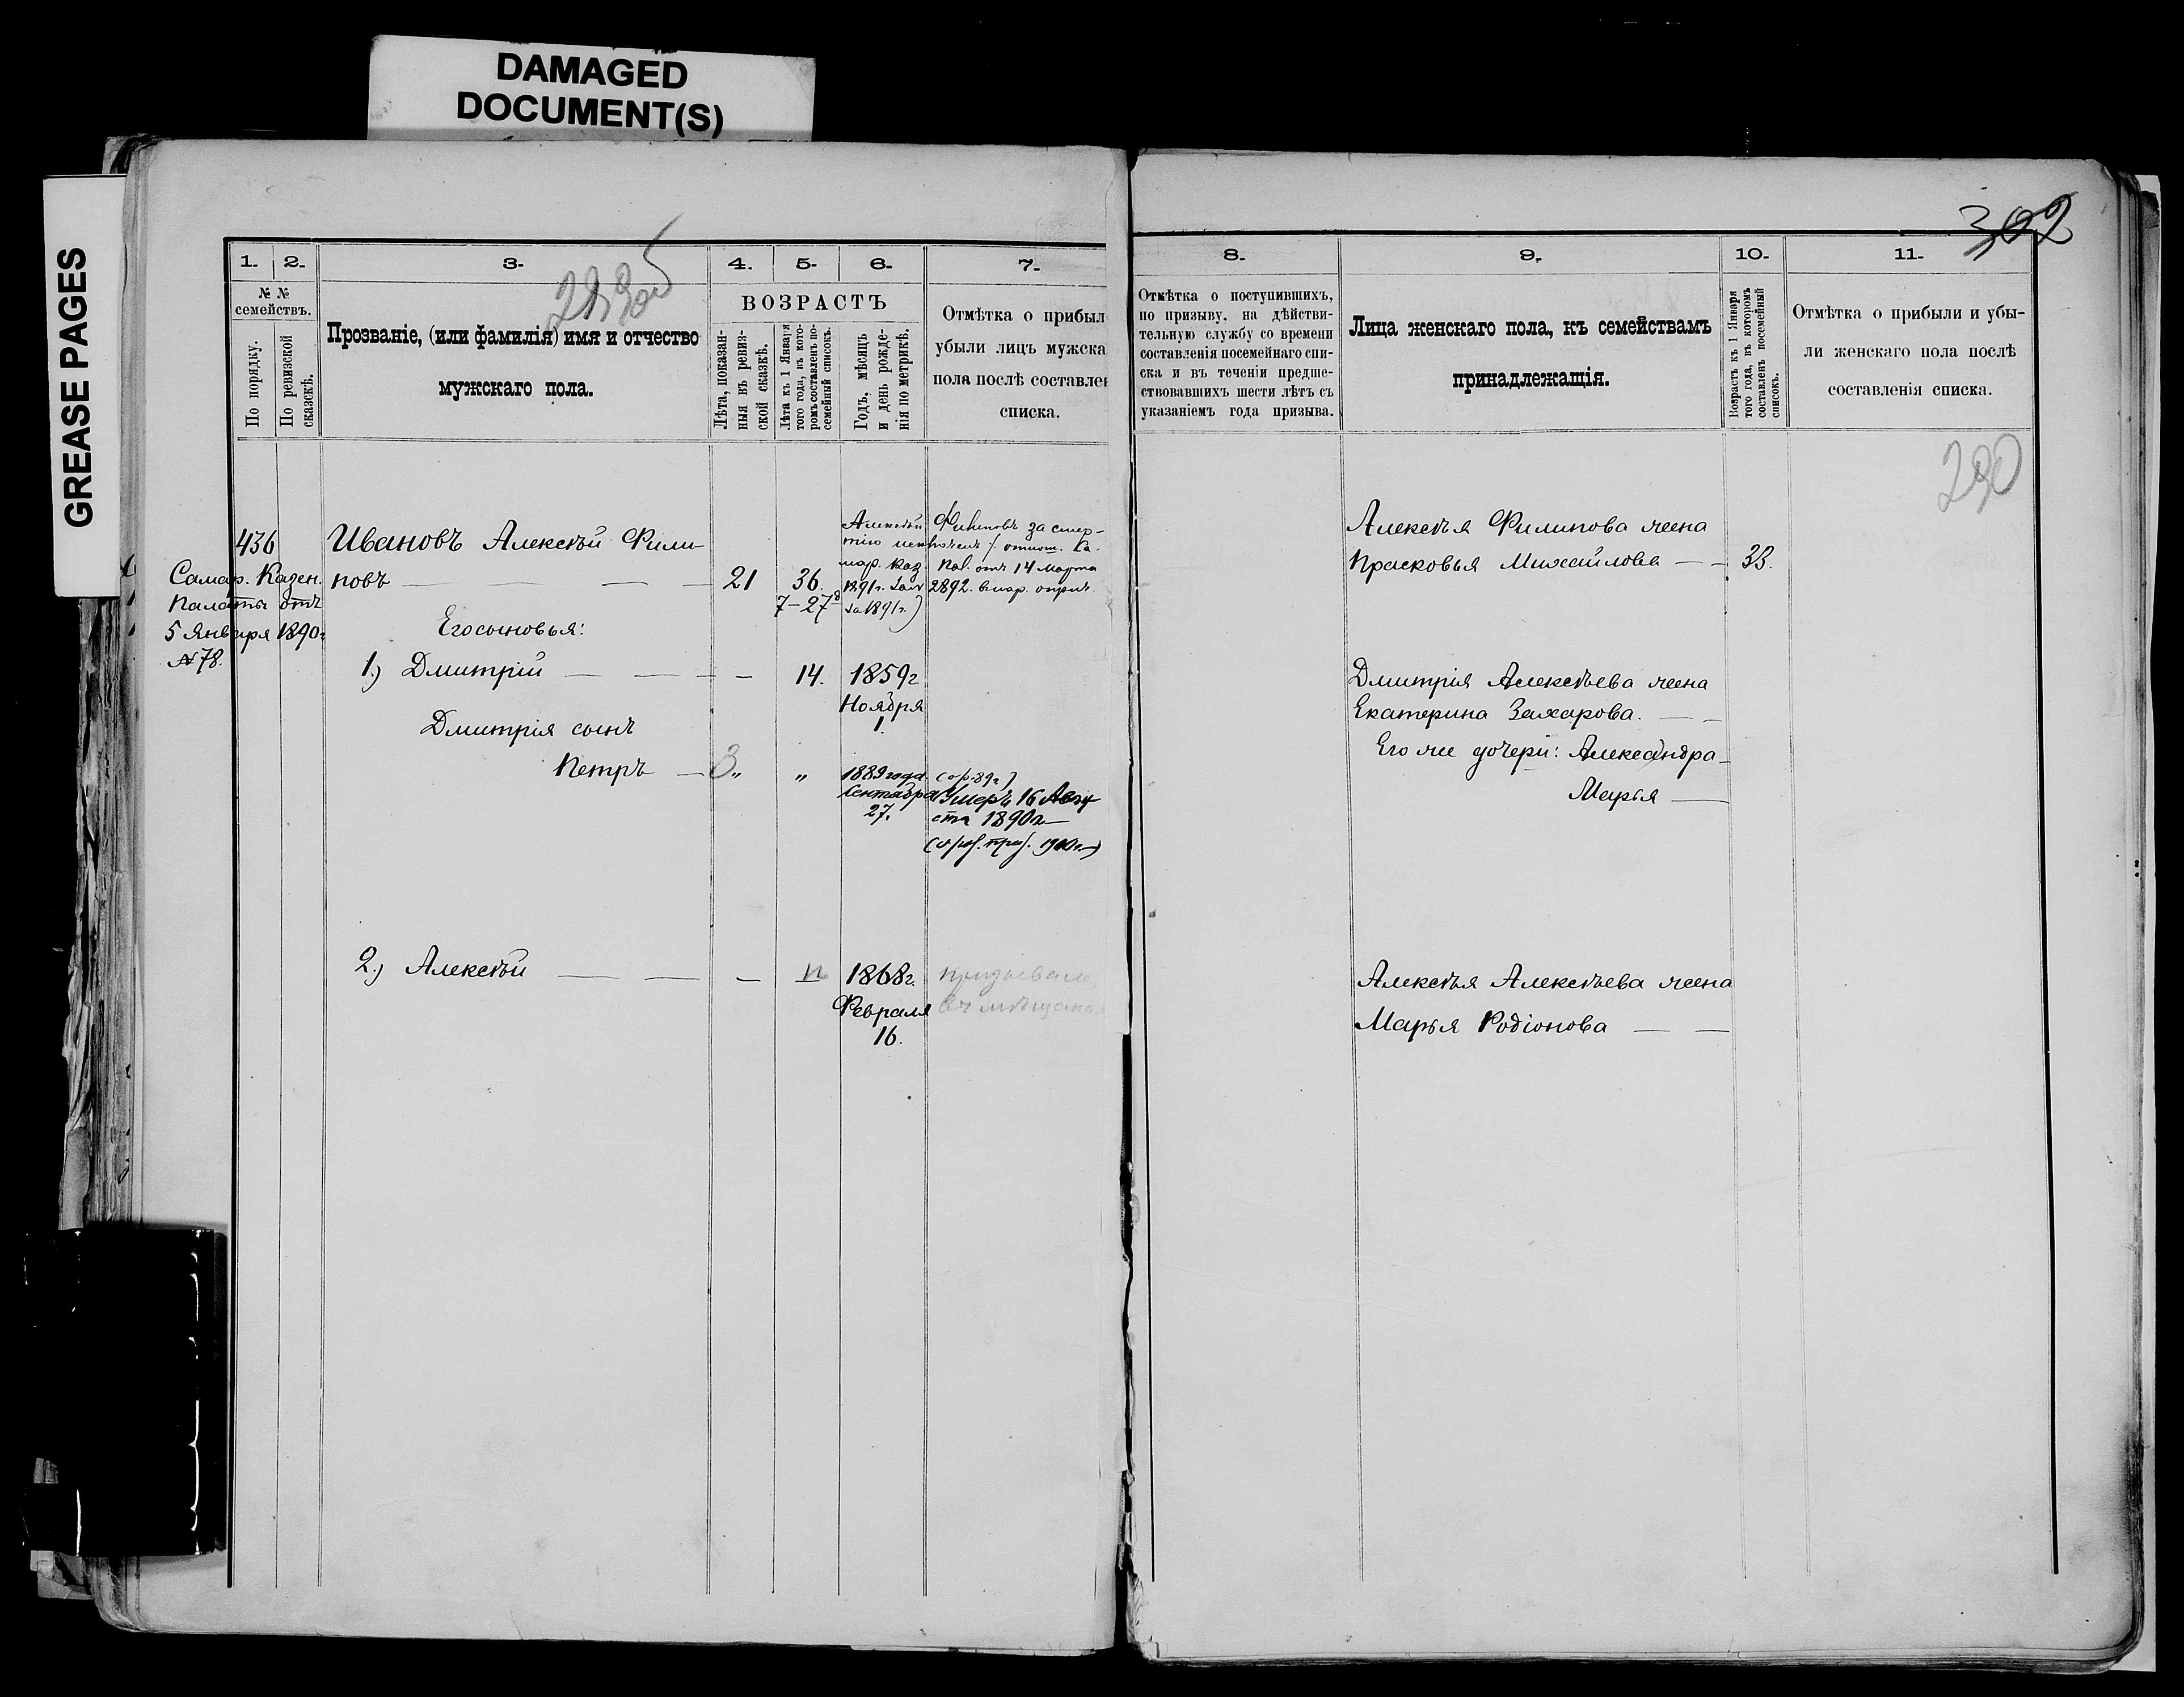 DAMAGED
DOCUMENT(S)
GREASE PAGES
302
1.
2.
3.
4.
5.
6.
7.
№ №
семействъ.
По порядку.
По ревизской
сказкѣ.
Прозваніе, (или фамилія) имя и отчество
мужскаго пола.
ВОЗРАСТЪ
Лѣта, показан-
ныя въ ревиз-
ской сказкѣ.
Лѣта къ 1 Января
того года, въ кото-
ромъ составленъ по-
семейный списокъ.
Годъ, мѣсяцъ
и день рожде-
нія по метрикѣ.
Отмѣтка о прибыл
убыли лицъ мужска
пола послѣ составле
списка.
436
Ивановъ Алексѣй Фили-
повъ
21
36
7-27
Алексѣй Филиповъ за смер-
тію
отъ 14 Марта
1891г.
2892.
за 1891г.)
Самар. Казен.
Палаты отъ
5 Января 1890г
№ 78.
Его сыновья:
1.) Дмитрій
14.
1859г
Ноября
1.
Дмитрія сынъ
Петръ
3
"
1889 года
Сентября
27.
Умеръ 16 Авгу
ста 1890г
2.) Алексѣй
1868г.
Февраля
16.
8.
9.
10.
11.
Отмѣтка о поступившихъ,
по призыву, на дѣйстви-
тельную службу со времени
составленія посемейнаго спи-
ска и въ теченіи предше-
ствовавшихъ шести лѣтъ съ
указаніемъ года призыва.
Лица женскаго пола, къ семействамъ
принадлежащія.
Возрастъ къ 1 Января
того года, въ которомъ
составленъ посемейный
списокъ.
Отмѣтка о прибыли и убы-
ли женскаго пола послѣ
составленія списка.
290
Алексѣя Филипова жена
Прасковья Михайлова
33.
Дмитрія Алексѣева жена
Екатерина Захарова.
Его же дочери: Александра
Марья
Алексѣя Алексѣева жена
Марья Родіонова